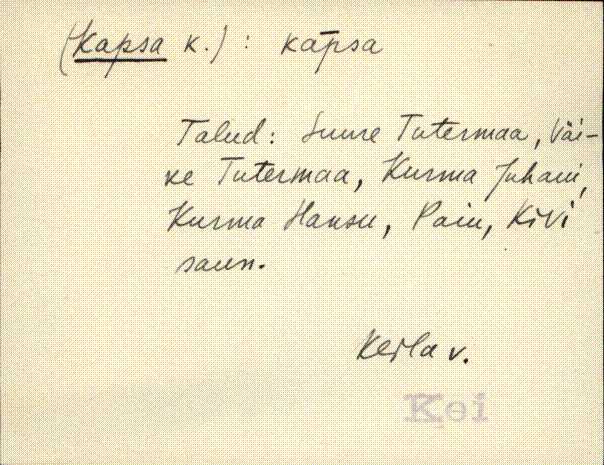 (Kapsa k.) : kāpsa
Talud: Suure Tutermaa, Väi-
ke Tutermaa, Kurma Juhani,
Kurma Hansu, Paiu, Kivi
saun.
Keila v.
Kei